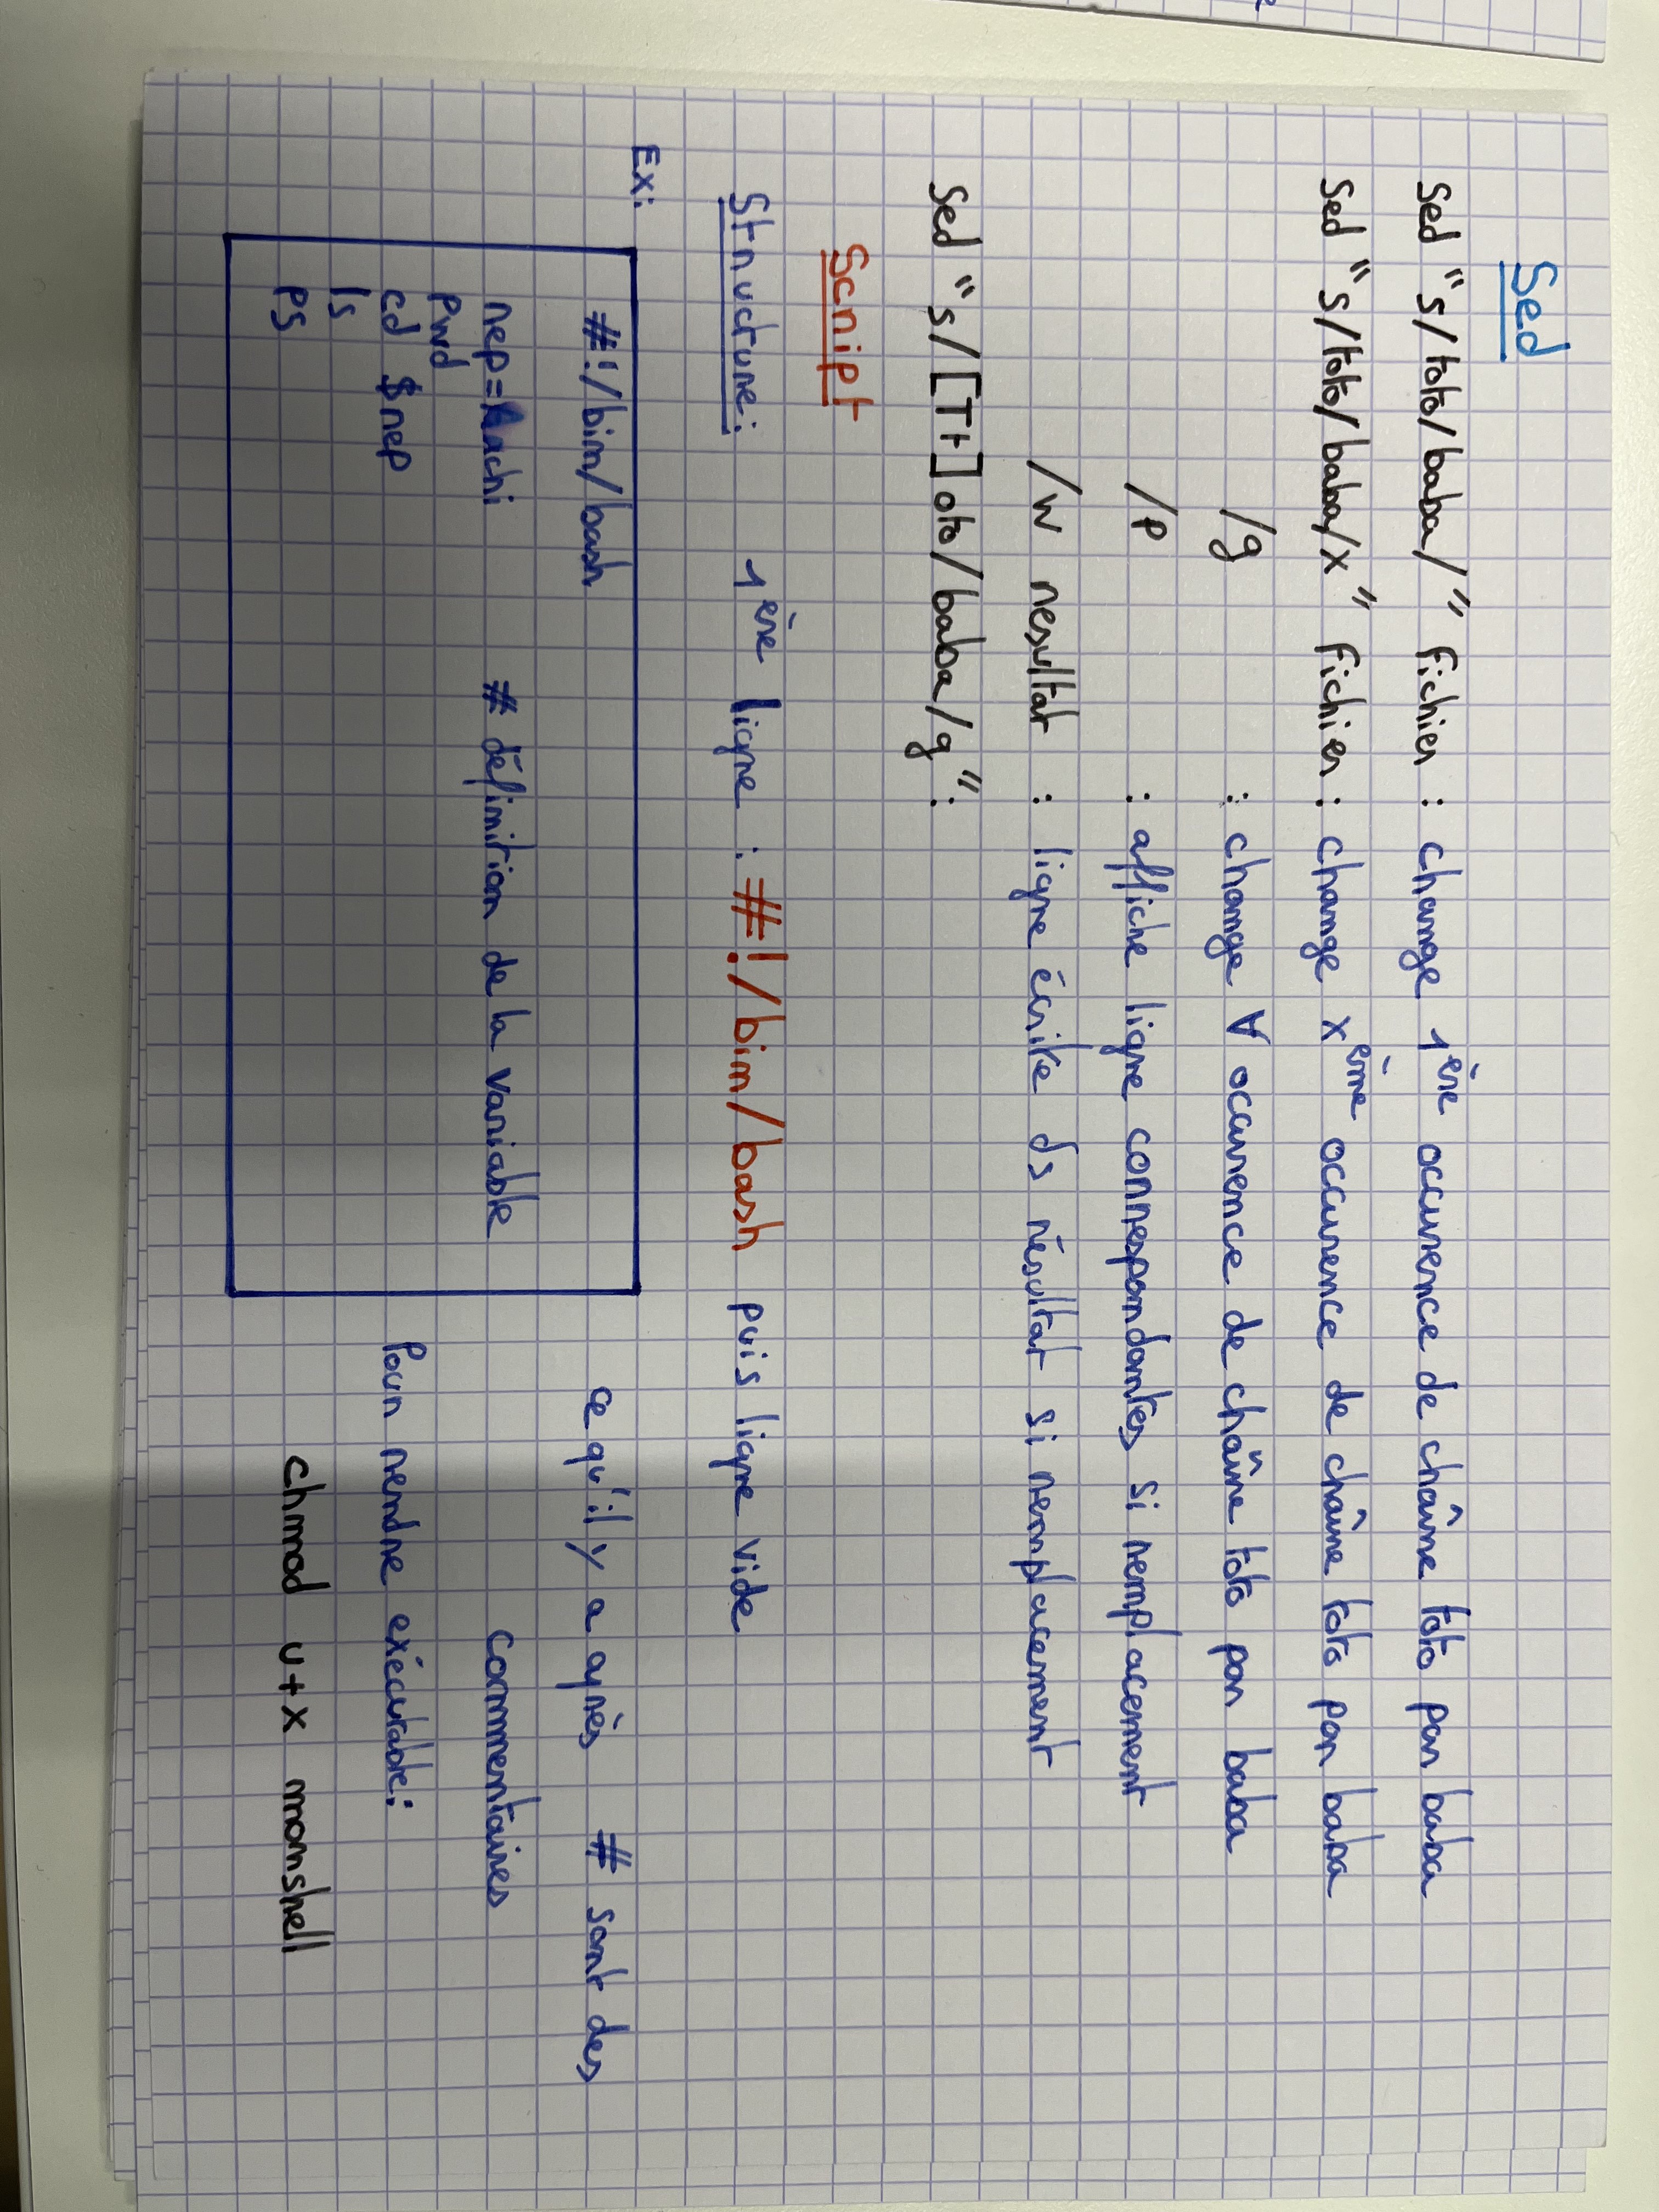 Sed
Sed "s/toto/baba/" fichier : change 1ère occurence de chaîne toto par baba
Sed "s/toto/baba/x" fichier : change xème occurence de chaîne toto par baba
/g : change ∀ occurence de chaîne toto par baba
/p : affiche ligne correspondantes si remplacement
/w resultat : ligne écrite ds résultat si remplacement
Sed "s/[Tt]oto/baba/g":
Script
Structure: 1ère ligne : #!/bin/bash puis ligne vide
Ex:
#!/bin/bash
rep= # définition de la variable
pwd
cd $rep
ls
ps
ce qu'il y a après # sont des
commentaires
Pour rendre exécutable:
chmod u+x monshell